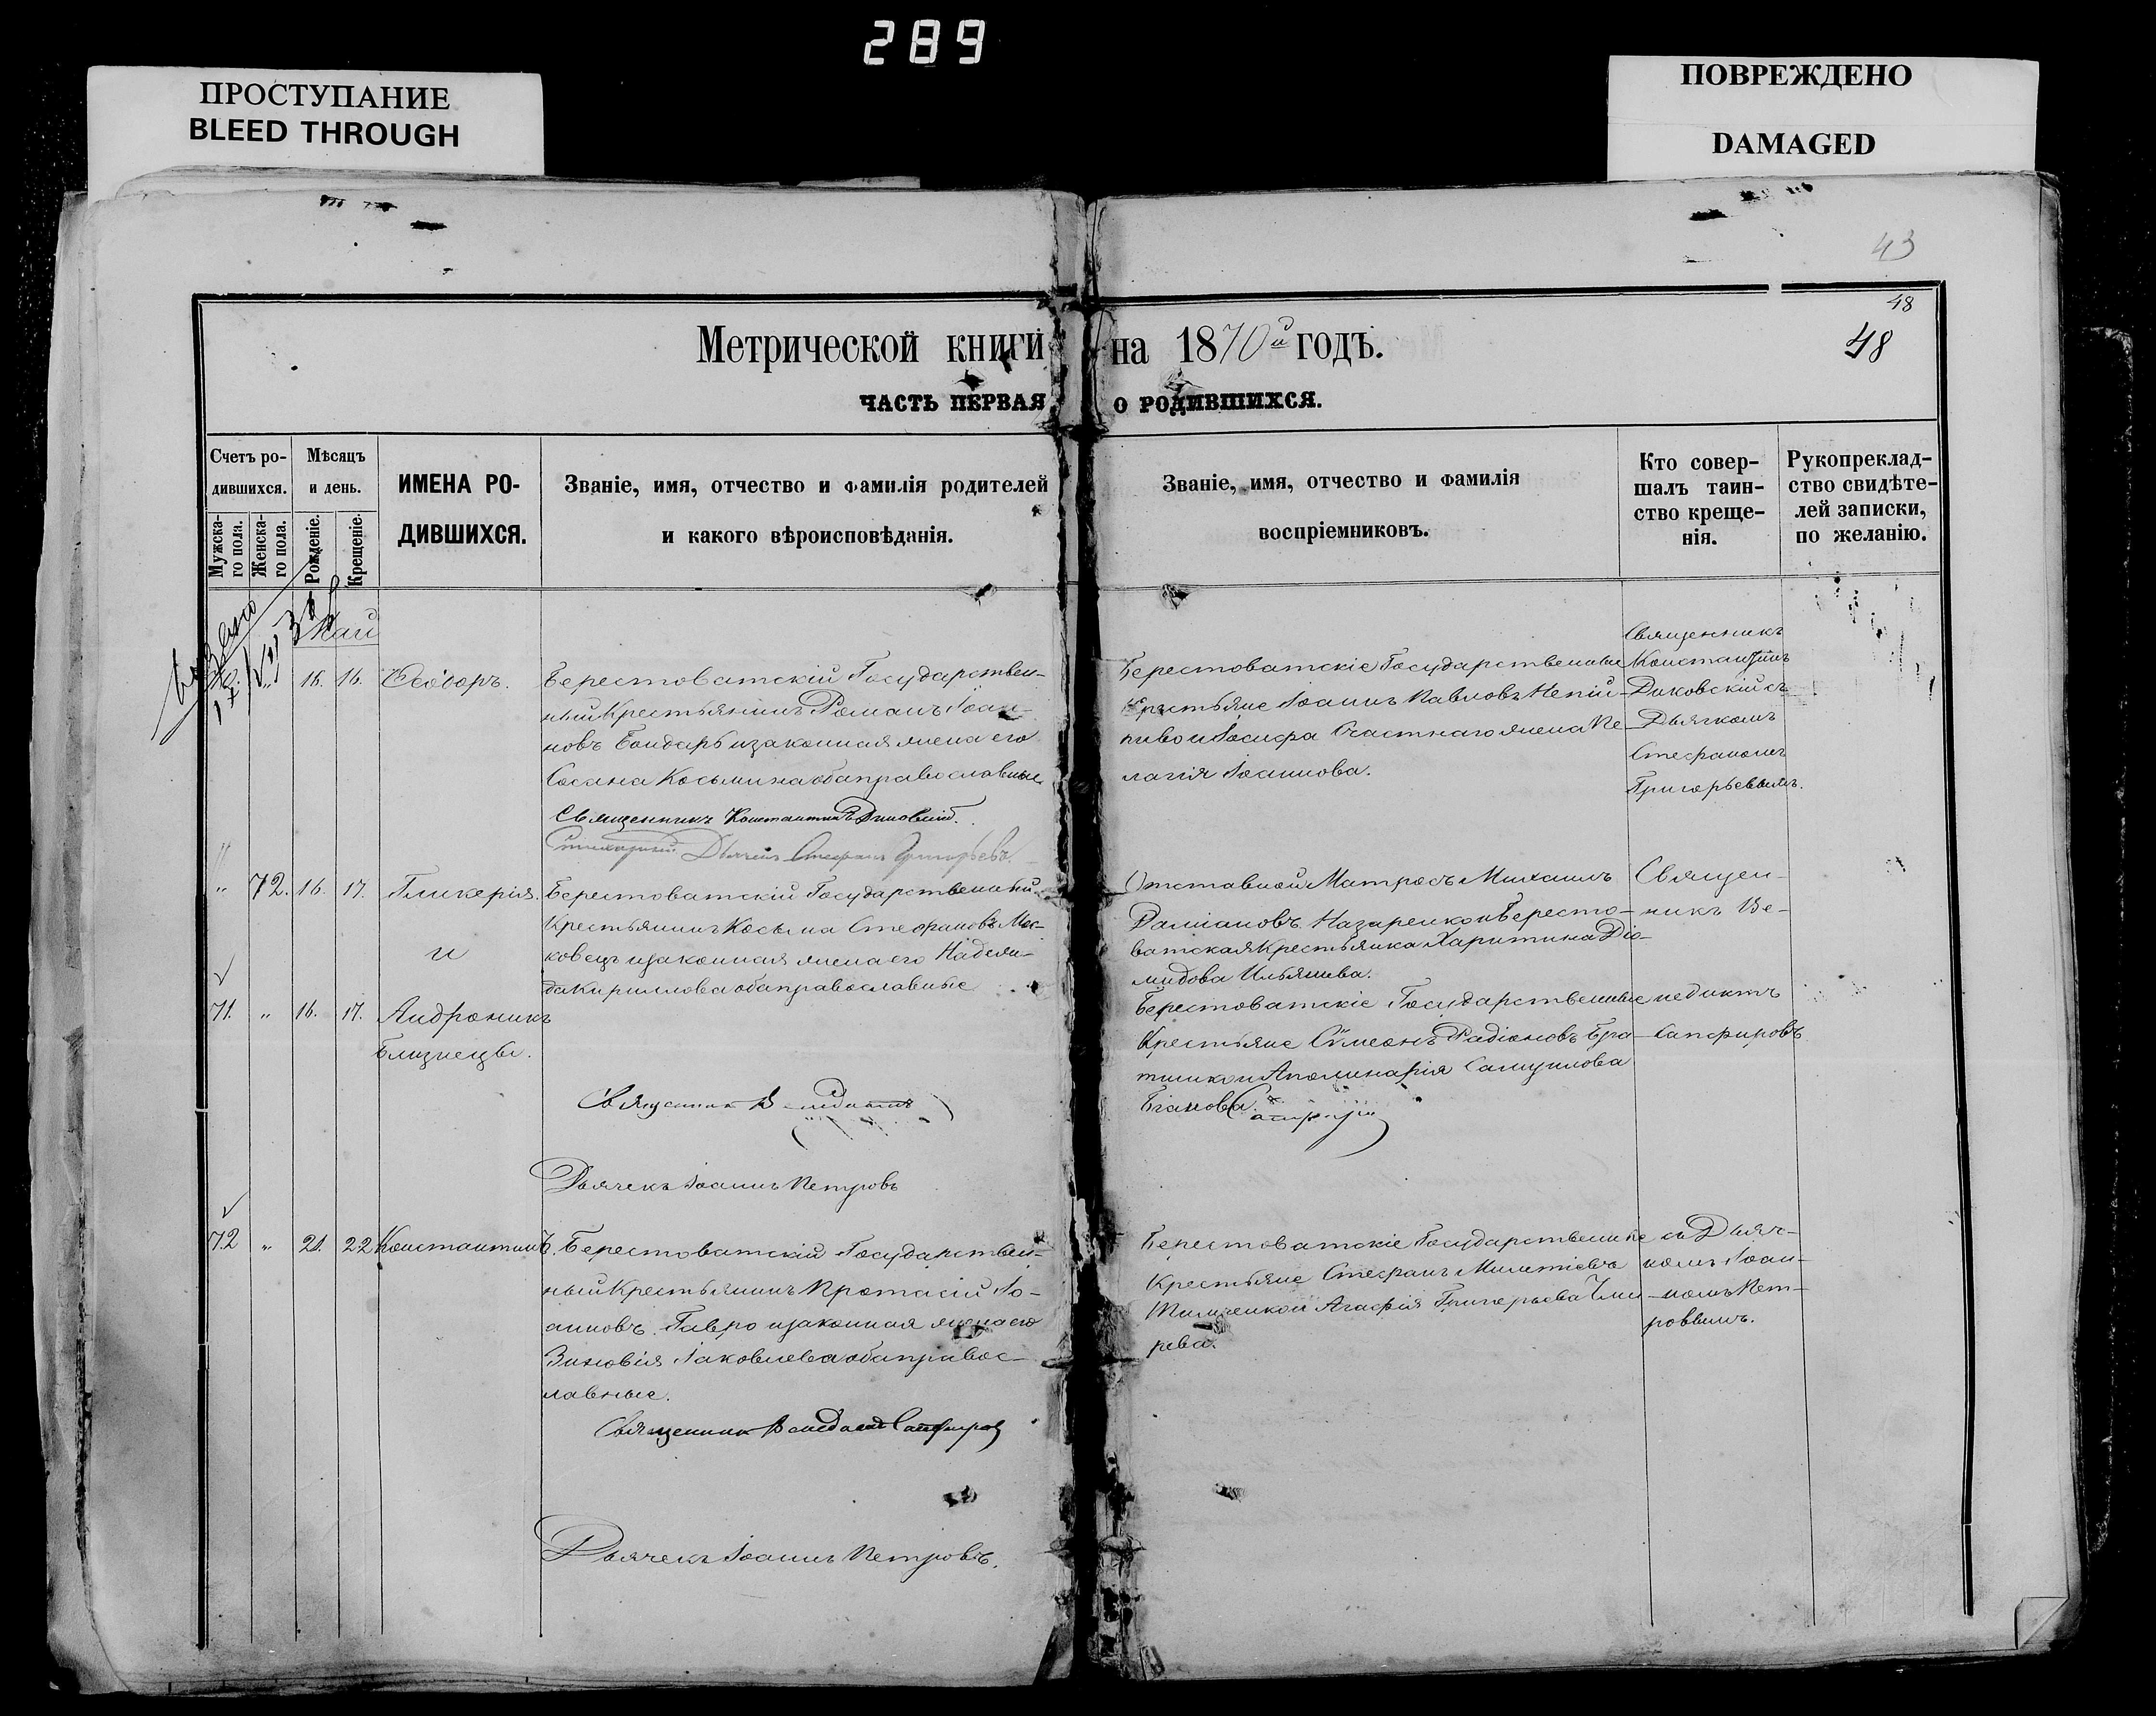 289
ПРОСТУПАНИЕ
BLEED THROUGH
ПОВРЕЖДЕНО
DAMAGED
43
48
48
Метрической книги на 1870й годъ.
ЧАСТЬ ПЕРВАЯ О РОДИВШИХСЯ.
Счетъ ро-
дившихся.
Мужска-
го пола.
Женска-
го пола.
Мѣсяцъ
и день.
Рожденіе.
Крещеніе.
ИМЕНА РО-
ДИВШИХСЯ.
Званіе, имя, отчество и фамилія родителей
и какого вѣроисповѣданія.
Званіе, имя, отчество и фамилія
воспріемниковъ.
Кто совер-
шалъ таин-
ство креще-
нія.
Рукопреклад-
ство свидѣте-
лей записки,
по желанію.
Май
16. 16. Ѳеодоръ.
Берестоватскій Государствен-
ный Крестьянинъ Романъ Іоан-
новъ Бондарь и законная жена его
Сосана Косьмина оба православные
Священникъ Константинъ
Дьячекъ Стефанъ Григорьевъ.
Берестоватскіе Государственные
Крестьяне Іоаннъ Павловъ Непій-
пиво и Іосифа Счастнаго жена Пе-
лагія Іоаннова.
Священникъ
Константинъ
Диковскій съ
Дьячкомъ
Стефаномъ
Григорьевымъ.
" 72. 16. 17. Гликерія.
и
Берестоватскій Государственный
Крестьянинъ Косьма Стефановъ Мос-
ковецъ и законная жена его Надеж-
да Кириллова оба православные
Отставной Матросъ Михаилъ
Даміановъ Назаренко и Бересто-
ватская Крестьянка Харитина Діо-
мидова Ильяшева.
Священ-
никъ Ве-
71. " 16. 17. Андроникъ
Близнецы.
Берестоватскіе Государственные
Крестьяне Сѵмеонъ Радіоновъ
и Аполинарія Самуилова
недиктъ
Сапфировъ
Священникъ Венедиктъ
Дьячекъ Іоаннъ Петровъ
72 " 21. 22 Константинъ.
Берестоватскій Государствен-
ный Крестьянинъ Протасій Іо-
анновъ Гавро и законная жена его
Зиновія Іаковлева оба правос-
лавные.
Священникъ Венедиктъ Сапфировъ
Дьячекъ Іоаннъ Петровъ.
Берестоватскіе Государственные
Крестьяне Стефанъ Милетіевъ
Тимченко и Агафія Григорьева Чми-
рева.
съ Дьяч-
комъ Іоан-
номъ Пет-
ровымъ.